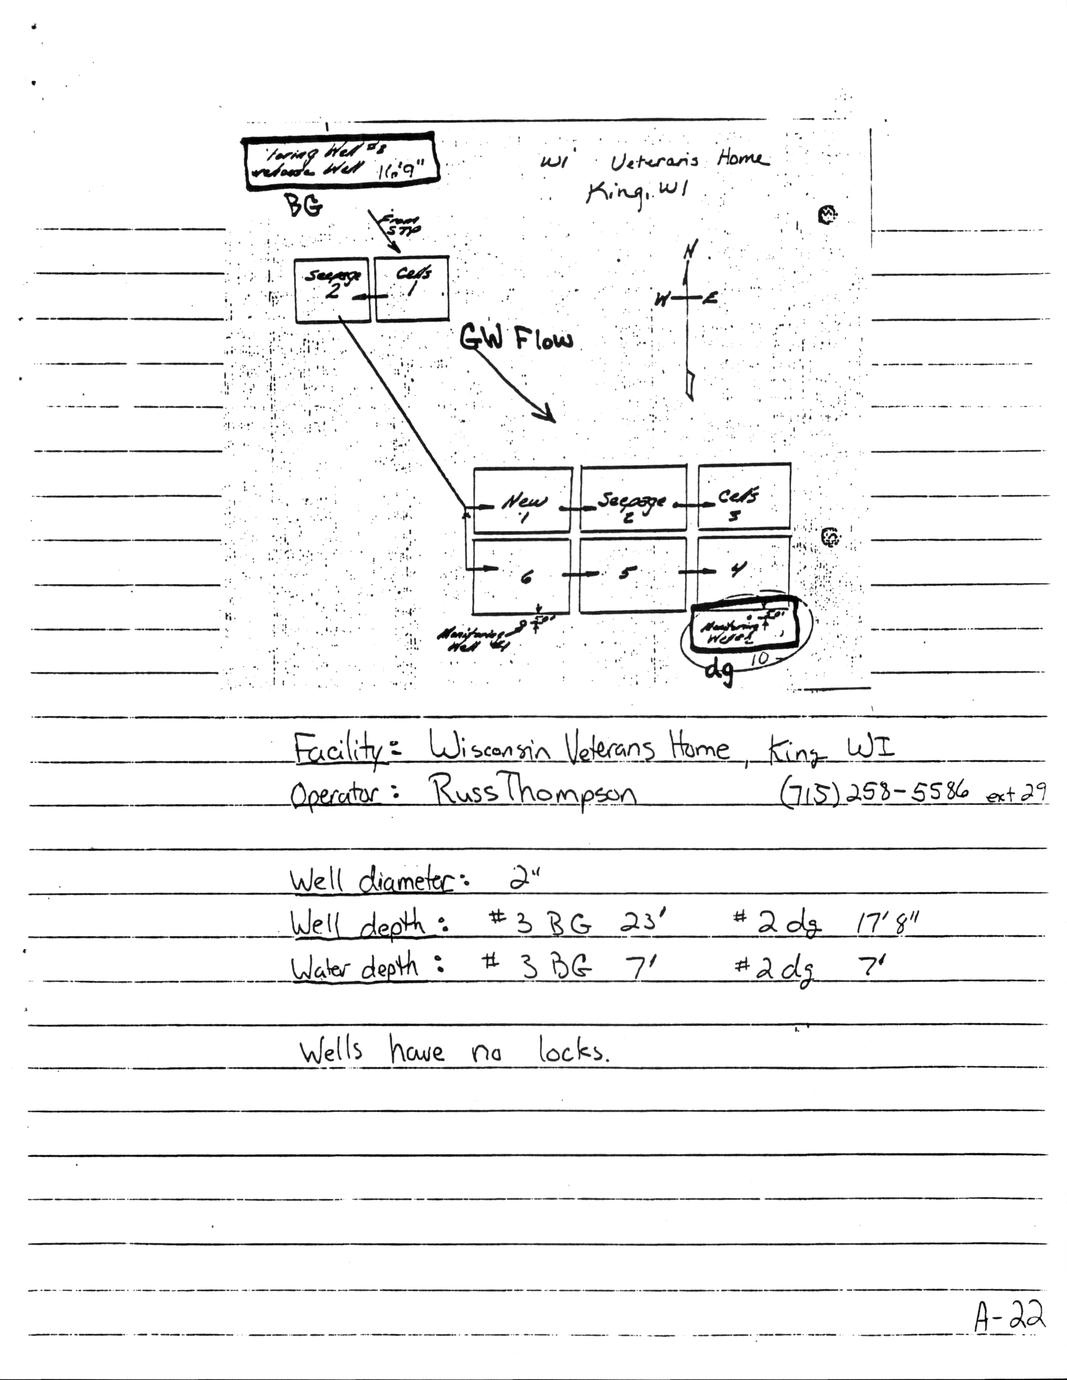 toring Well #3
Well 16'9"
WI Veterans Home
King, WI
BG
From
STP
Seepage Cells
2 1
N
W E
GW Flow
New Seepage Cells
1 2 3
6 5 4
50'
Monitoring
Well #1
50'
Monitoring
Well #2
10
dg
Facility: Wisconsin Veterans Home, King WI
Operator: Russ Thompson (715) 258-5586 ext 29
Well diameter: 2"
Well depth: #3 BG 23' #2 dg 17'8"
Water depth: #3 BG 7' #2 dg 7'
Wells have no locks.
A-22